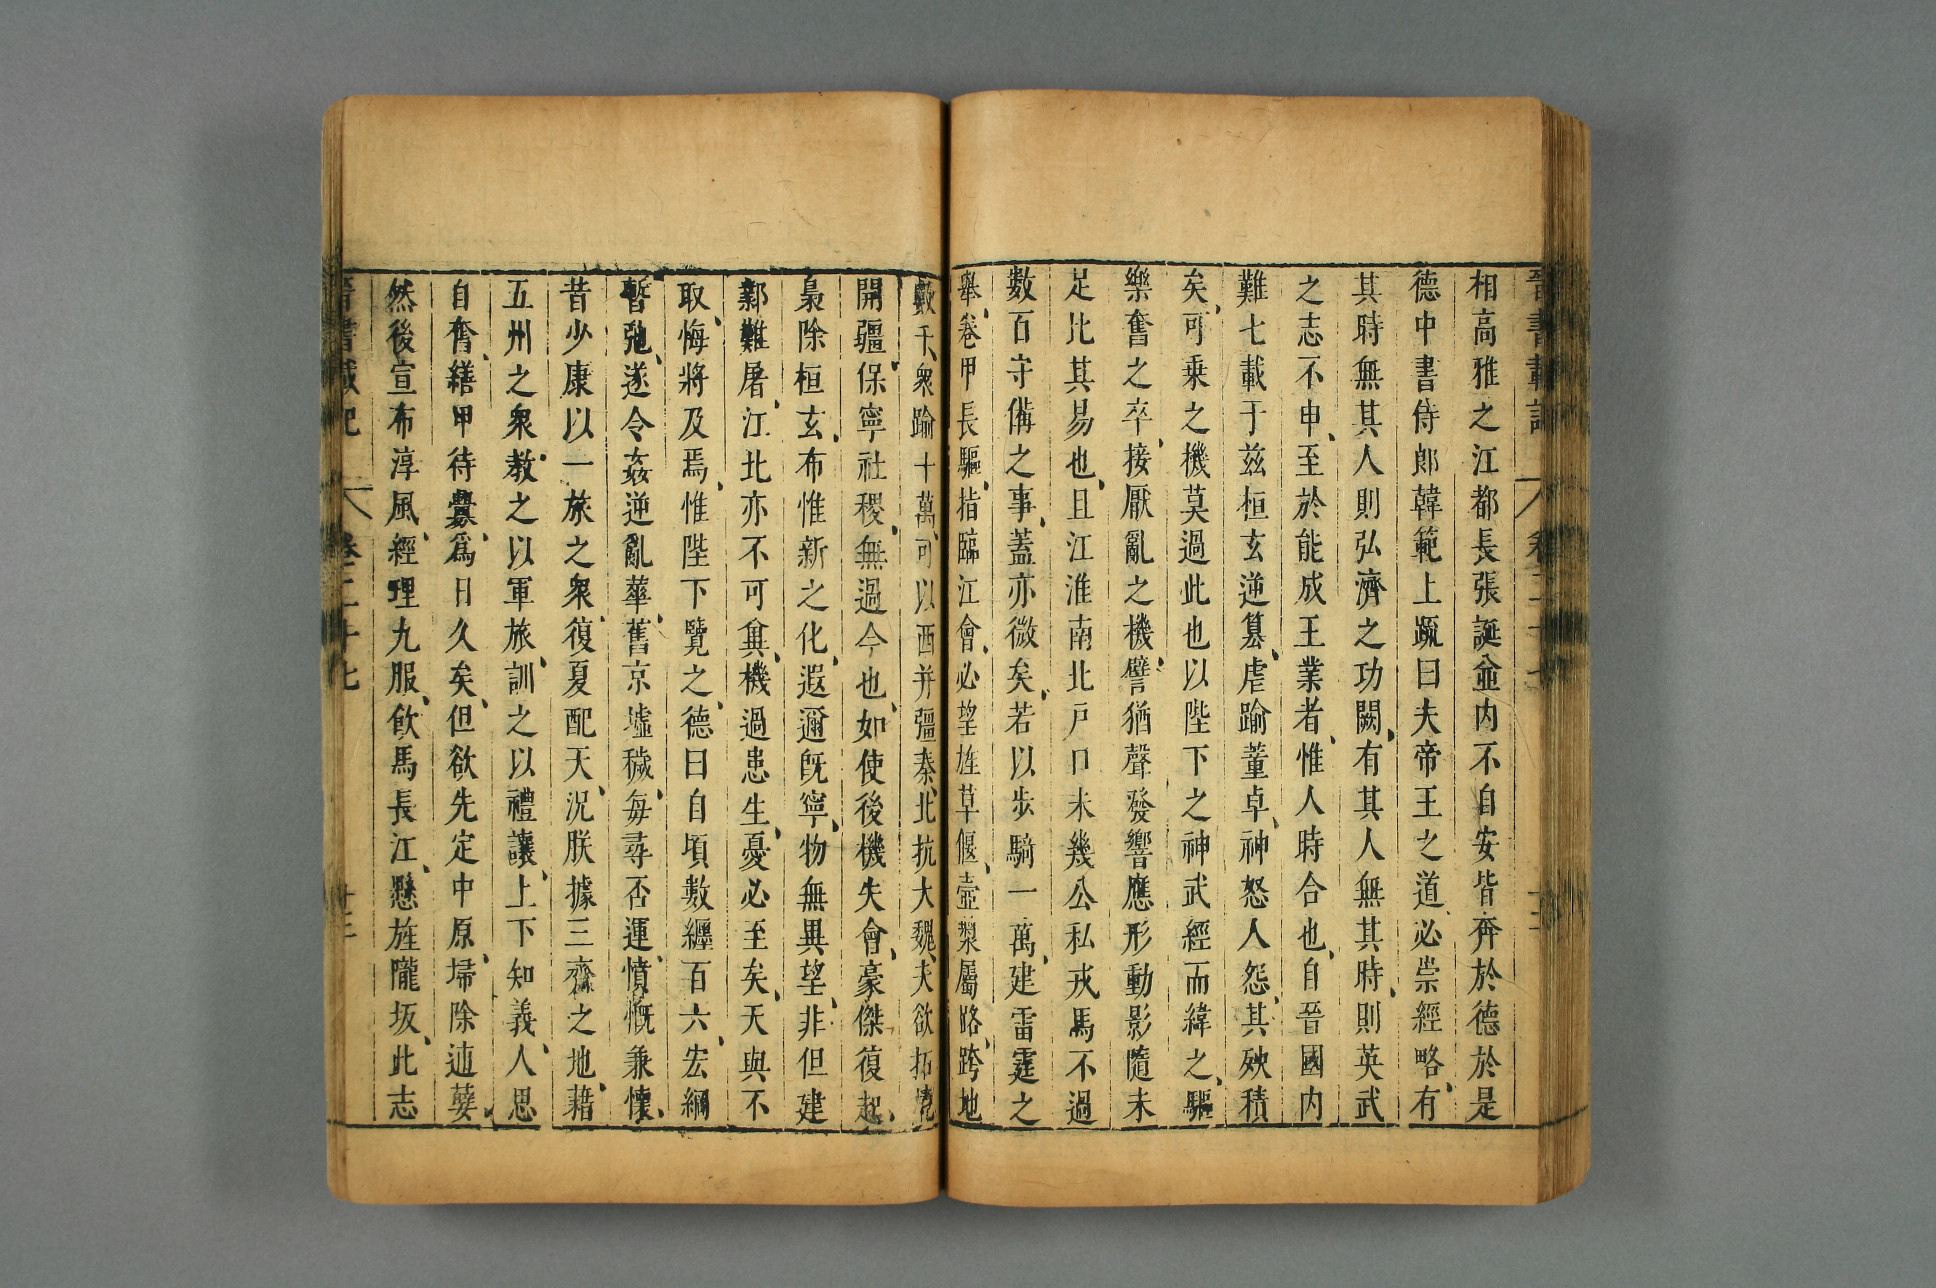 晉書載記
卷二十七
相高雅之江都長張誕並内不自安皆奔於德於是
德中書侍郎韓範上疏曰夫帝王之道必崇經略有
其時無其人則弘濟之功闕有其人無其時則英武
之志不申至於能成王業者惟人時合也自晉國内
難七載于兹桓玄逆篡虐踰董卓神怒人怨其殃積
矣可乗之機莫過此也以陛下之神武經而緯之驅
樂奮之卒接厭亂之機譬猶聲發響應形動影隨未
足比其易也且江淮南北戸口未幾公私戎馬不過
數百守備之事蓋亦微矣若以步騎一萬建雷霆之
舉卷甲長驅指臨江會必望旌草偃壺漿屬路跨地
數千衆踰十萬可以西并彊秦北抗大魏夫欲拓境
開疆保寧社稷無過今也如使後機失會豪傑復起
梟除桓玄布惟新之化遐邇既寧物無異望非但建
鄴難屠江北亦不可兾機過患生憂必至矣天與不
取悔將及焉惟陛下覽之德曰自頃數纏百六宏綱
暫弛遂令姦逆亂華舊京墟穢每尋否運憤慨兼懷
昔少康以一旅之衆復夏配天況朕據三齊之地藉
五州之衆教之以軍旅訓之以禮讓上下知義人思
自奮繕甲待釁爲日久矣但欲先定中原埽除逋孽
然後宣布淳風經理九服飲馬長江懸旌隴坂此志
晉書載記
卷二十七
十三